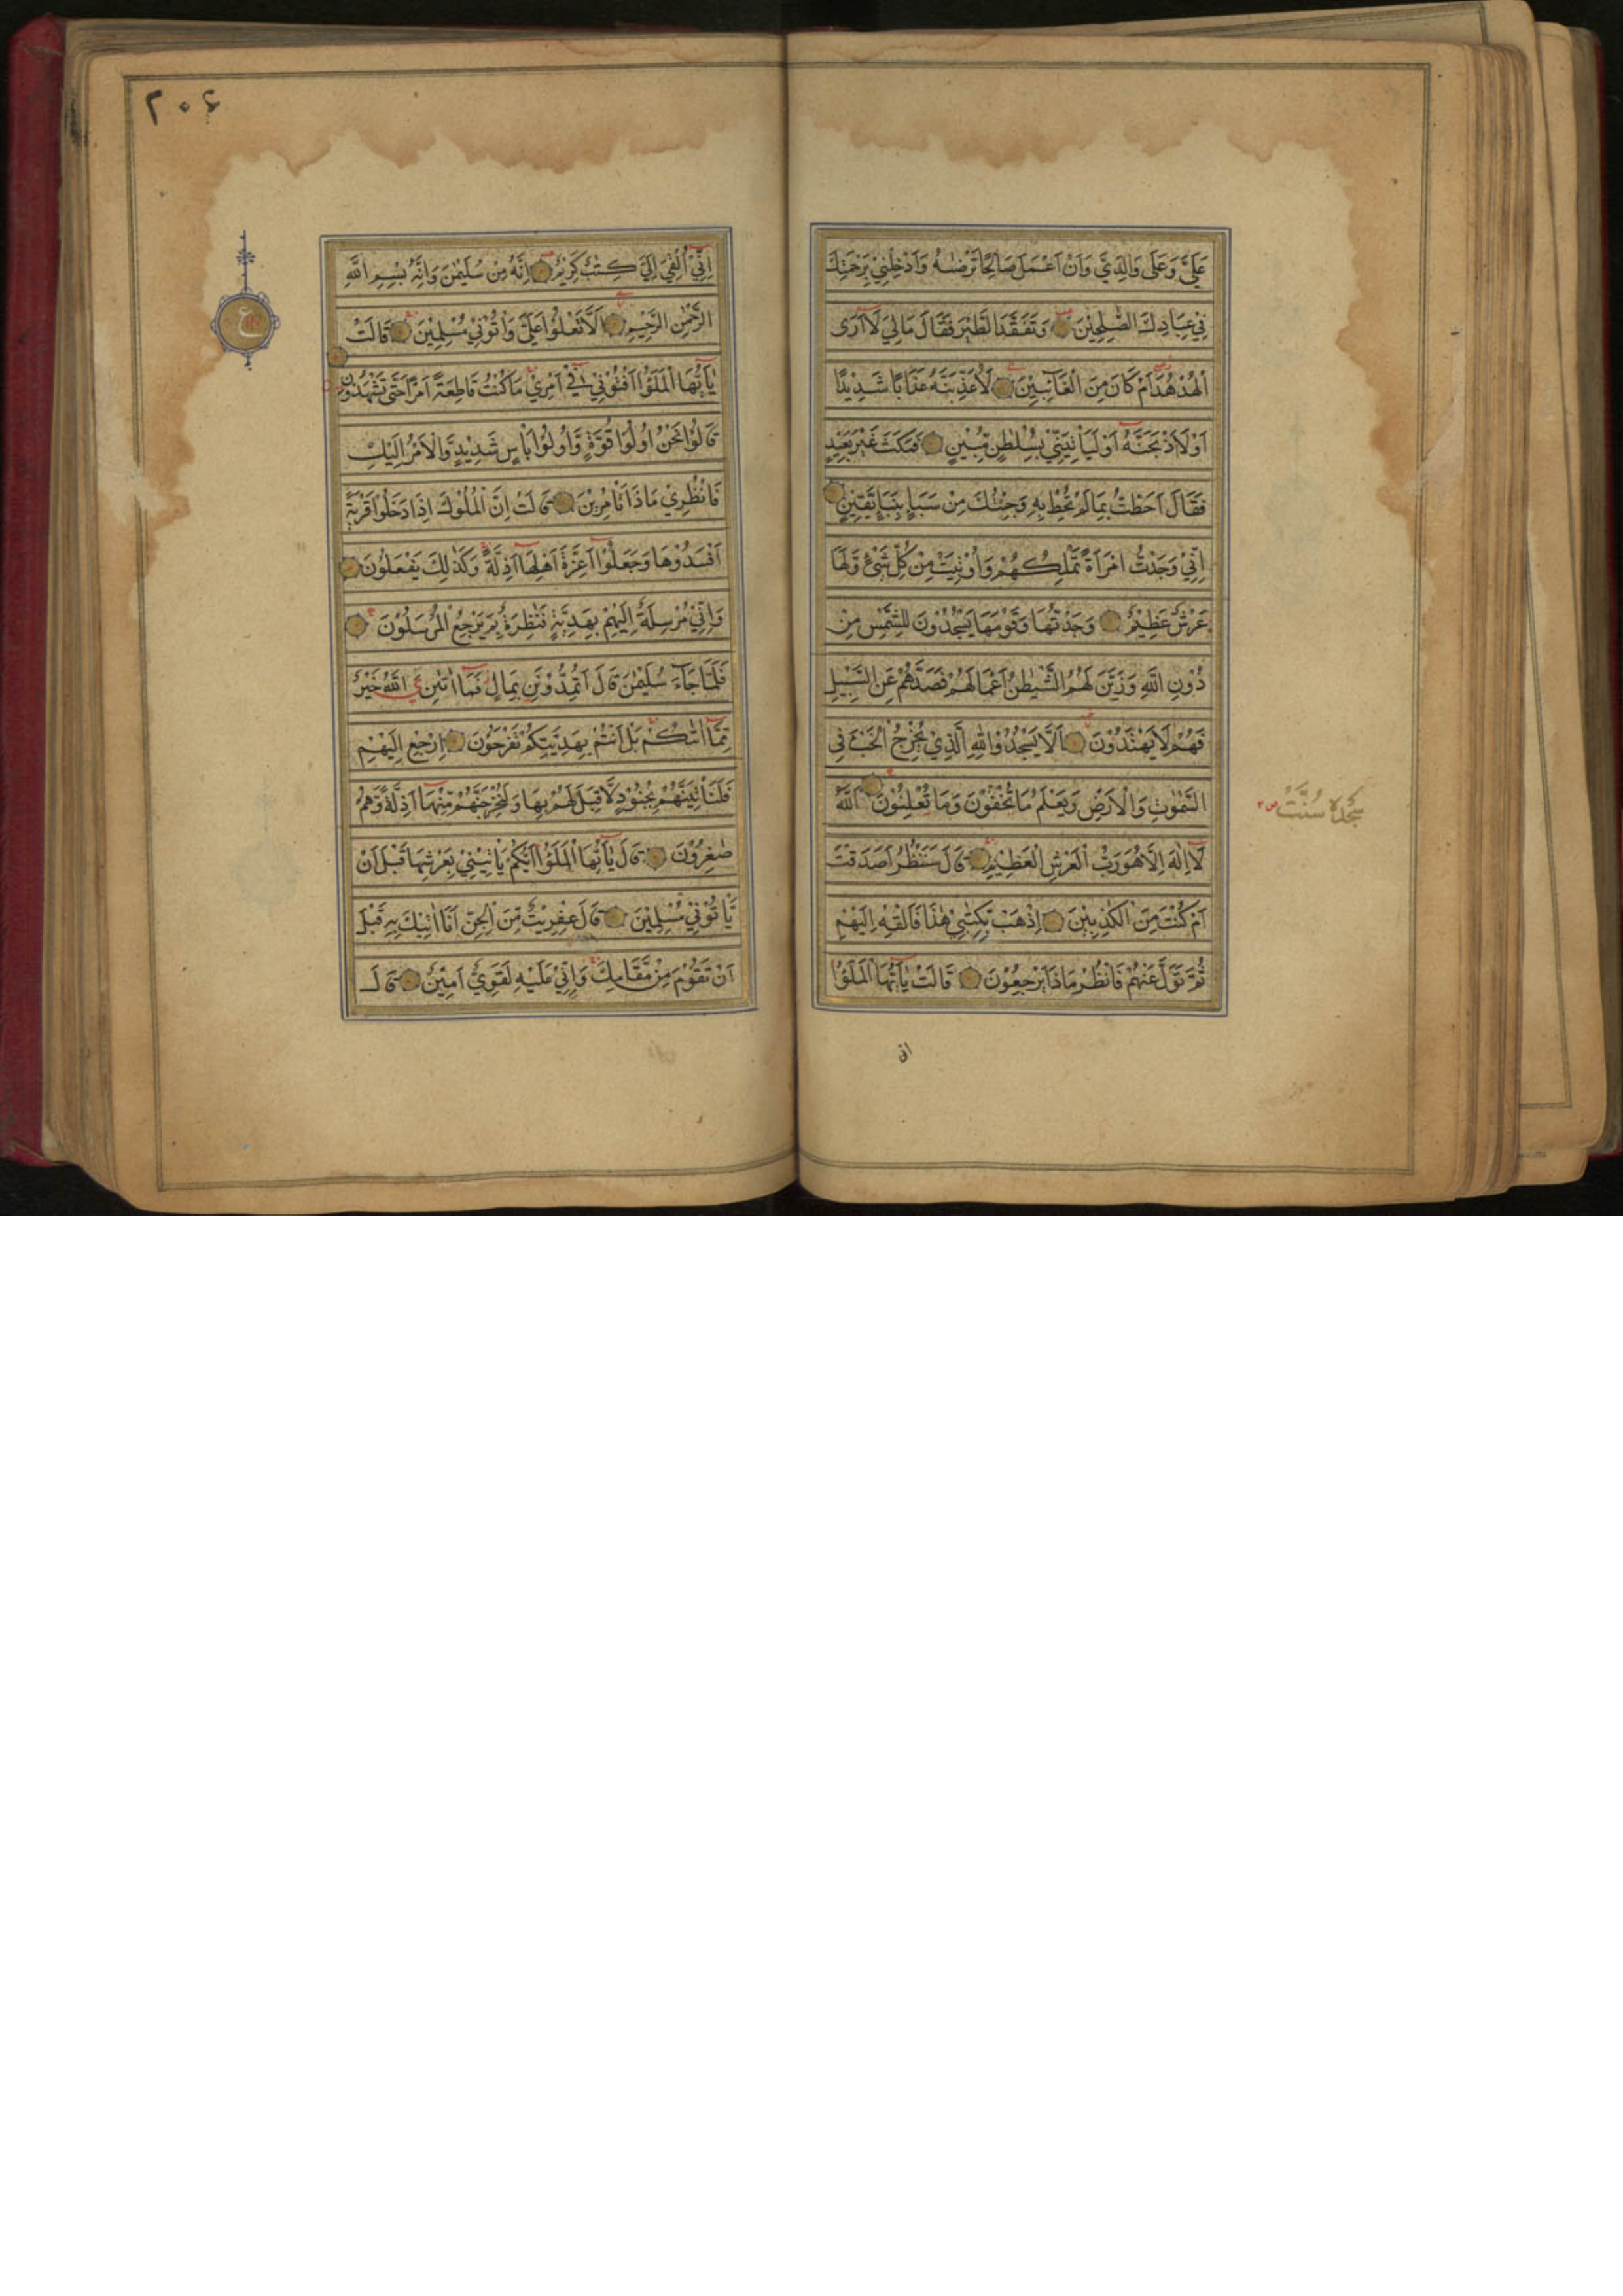 عَلَيَّ وَعَلٰى وَالِدَيَّ وَاَنْ اَعْمَلَ صَالِحًا تَرْضٰىهُ وَاَدْخِلْنِيْ بِرَحْمَتِكَ
فِيْ عِبَادِكَ الصّٰلِحِيْنَ وَتَفَقَّدَ الطَّيْرَ فَقَالَ مَالِيَ لَآ اَرَى
الْهُدْهُدَ اَمْ كَانَ مِنَ الْغَآئِبِيْنَ لَاُعَذِّبَنَّهٗ عَذَابًا شَدِيْدًا
اَوْ لَاَاذْبَحَنَّهٗ اَوْ لَيَاْتِيَنِّيْ بِسُلْطٰنٍ مُّبِيْنٍ فَمَكَثَ غَيْرَ بَعِيْدٍ
فَقَالَ اَحَطْتُ بِمَا لَمْ تُحِطْ بِهٖ وَجِئْتُكَ مِنْ سَبَاٍ بِنَبَاٍ يَّقِيْنٍ
اِنِّيْ وَجَدْتُّ امْرَاَةً تَمْلِكُهُمْ وَاُوْتِيَتْ مِنْ كُلِّ شَيْءٍ وَّلَهَا
عَرْشٌ عَظِيْمٌ وَجَدْتُّهَا وَقَوْمَهَا يَسْجُدُوْنَ لِلشَّمْسِ مِنْ
دُوْنِ اللّٰهِ وَزَيَّنَ لَهُمُ الشَّيْطٰنُ اَعْمَالَهُمْ فَصَدَّهُمْ عَنِ السَّبِيْلِ
فَهُمْ لَا يَهْتَدُوْنَ اَلَّا يَسْجُدُوْا لِلّٰهِ الَّذِيْ يُخْرِجُ الْخَبْءَ فِي
السَّمٰوٰتِ وَالْاَرْضِ وَيَعْلَمُ مَا تُخْفُوْنَ وَمَا تُعْلِنُوْنَ اَللّٰهُ
سجدهٔ سُنَّتْ
لَآ اِلٰهَ اِلَّا هُوَ رَبُّ الْعَرْشِ الْعَظِيْمِ قَالَ سَنَنْظُرُ اَصَدَقْتَ
اَمْ كُنْتَ مِنَ الْكٰذِبِيْنَ اِذْهَبْ بِّكِتٰبِيْ هٰذَا فَاَلْقِهْ اِلَيْهِمْ
ثُمَّ تَوَلَّ عَنْهُمْ فَانْظُرْ مَاذَا يَرْجِعُوْنَ قَالَتْ يٰٓاَيُّهَا الْمَلَؤُا
انی
٢٠۶
اِنِّيْٓ اُلْقِيَ اِلَيَّ كِتٰبٌ كَرِيْمٌ اِنَّهٗ مِنْ سُلَيْمٰنَ وَاِنَّهٗ بِسْمِ اللّٰهِ
الرَّحْمٰنِ الرَّحِيْمِ اَلَّا تَعْلُوْا عَلَيَّ وَاْتُوْنِيْ مُسْلِمِيْنَ قَالَتْ
ع
يٰٓاَيُّهَا الْمَلَؤُا اَفْتُوْنِيْ فِيْٓ اَمْرِيْ مَا كُنْتُ قَاطِعَةً اَمْرًا حَتّٰى تَشْهَدُوْنِ
قَالُوْا نَحْنُ اُولُوْا قُوَّةٍ وَّاُولُوْا بَاْسٍ شَدِيْدٍ وَّالْاَمْرُ اِلَيْكِ
فَانْظُرِيْ مَاذَا تَاْمُرِيْنَ قَالَتْ اِنَّ الْمُلُوْكَ اِذَا دَخَلُوْا قَرْيَةً
اَفْسَدُوْهَا وَجَعَلُوْٓا اَعِزَّةَ اَهْلِهَآ اَذِلَّةً وَكَذٰلِكَ يَفْعَلُوْنَ
وَاِنِّيْ مُرْسِلَةٌ اِلَيْهِمْ بِهَدِيَّةٍ فَنٰظِرَةٌ بِمَ يَرْجِعُ الْمُرْسَلُوْنَ
فَلَمَّا جَآءَ سُلَيْمٰنَ قَالَ اَتُمِدُّوْنَنِ بِمَالٍ فَمَآ اٰتٰىنِ يَ اللّٰهُ خَيْرٌ
مِّمَّآ اٰتٰىكُمْ بَلْ اَنْتُمْ بِهَدِيَّتِكُمْ تَفْرَحُوْنَ اِرْجِعْ اِلَيْهِمْ
فَلَنَاْتِيَنَّهُمْ بِجُنُوْدٍ لَّا قِبَلَ لَهُمْ بِهَا وَلَنُخْرِجَنَّهُمْ مِّنْهَآ اَذِلَّةً وَّهُمْ
صٰغِرُوْنَ قَالَ يٰٓاَيُّهَا الْمَلَؤُا اَيُّكُمْ يَاْتِيْنِيْ بِعَرْشِهَا قَبْلَ اَنْ
يَّاْتُوْنِيْ مُسْلِمِيْنَ قَالَ عِفْرِيْتٌ مِّنَ الْجِنِّ اَنَا اٰتِيْكَ بِهٖ قَبْلَ
اَنْ تَقُوْمَ مِنْ مَّقَامِكَ وَاِنِّيْ عَلَيْهِ لَقَوِيٌّ اَمِيْنٌ قَالَ